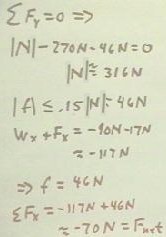 ΣFy=0 =>
|N|-270N-46N=0
|N|≈316N
|f|≤.15|N|=46N
Wx+Fx=-90N-17N
≈-117N
=> f=46N
ΣFx=-117N+46N
≈-70N=Fnet